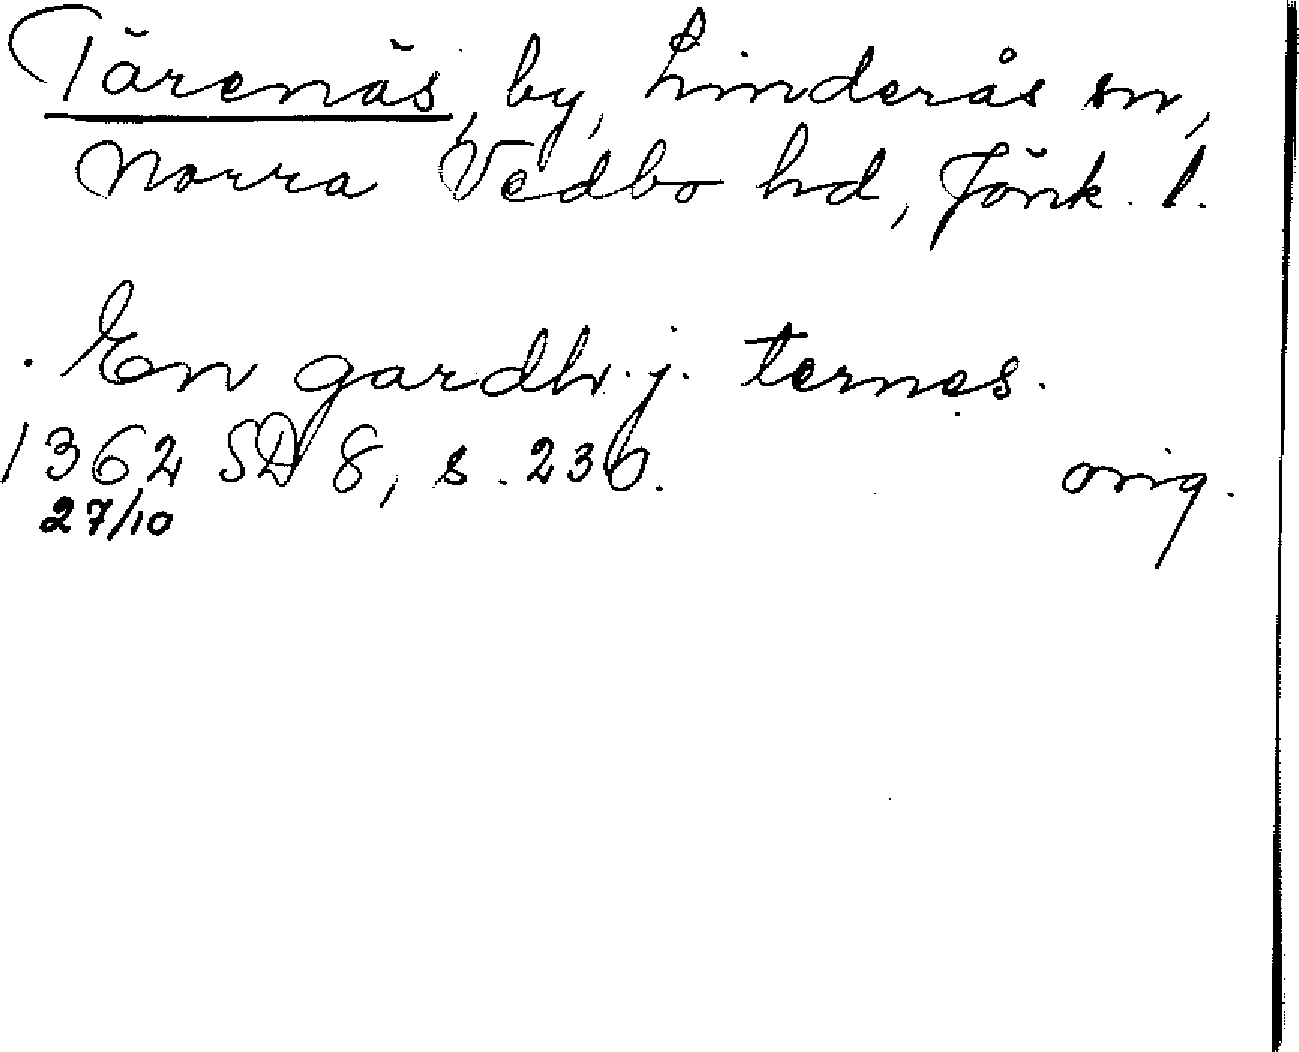 Tärenäs, by, Linderås sn,
Norra Vedbo hd, Jönk. l.
En gardh j. ternes.
1362 SD 8, s. 236. orig.
27/10